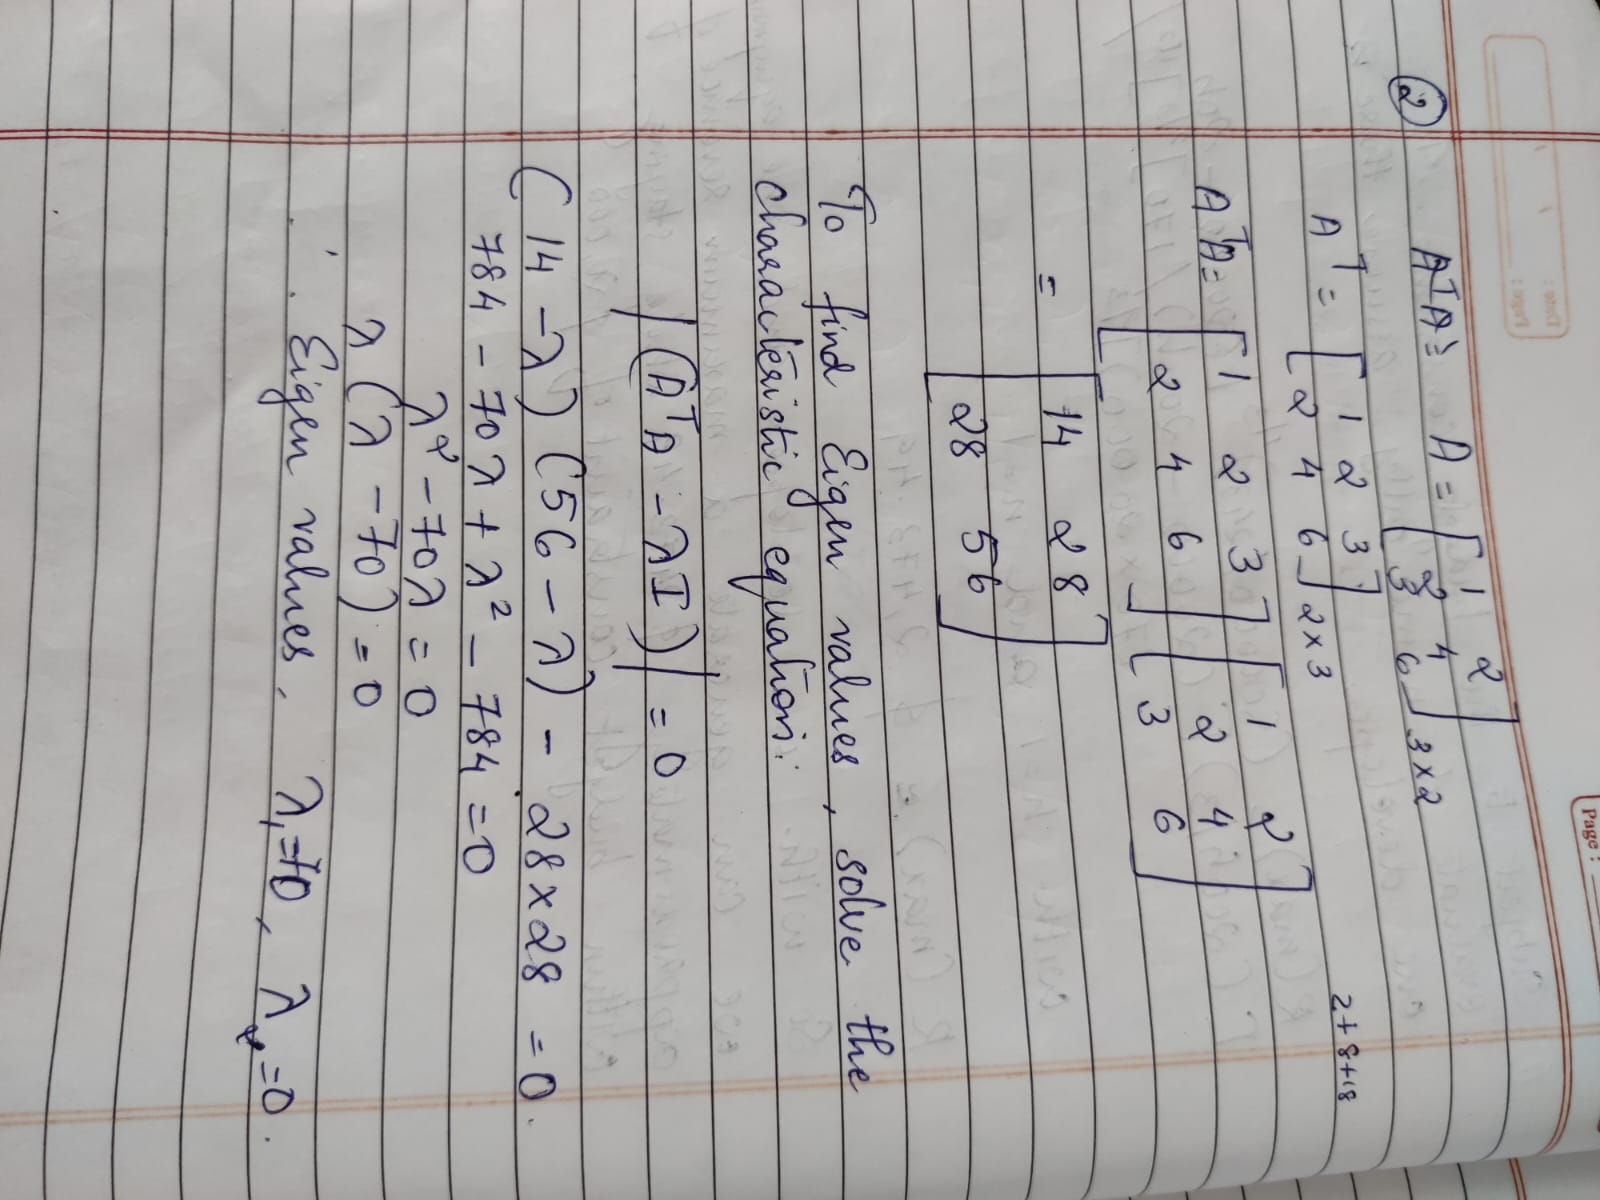 Page :
② AᵀA = A = [1 2
2 4
3 6] 3×2
Aᵀ = [1 2 3
2 4 6] 2×3
2+8+18
AᵀA = [1 2 3
2 4 6] [1 2
2 4
3 6]
= [14 28
28 56]
To find Eigen values, solve the
characteristic equation:
|(AᵀA - λI)| = 0
(14 - λ) (56 - λ) - 28×28 = 0.
784 - 70λ + λ² - 784 = 0
λ² - 70λ = 0
λ(λ - 70) = 0
∴ Eigen values, λ₁=70, λ₂=0.